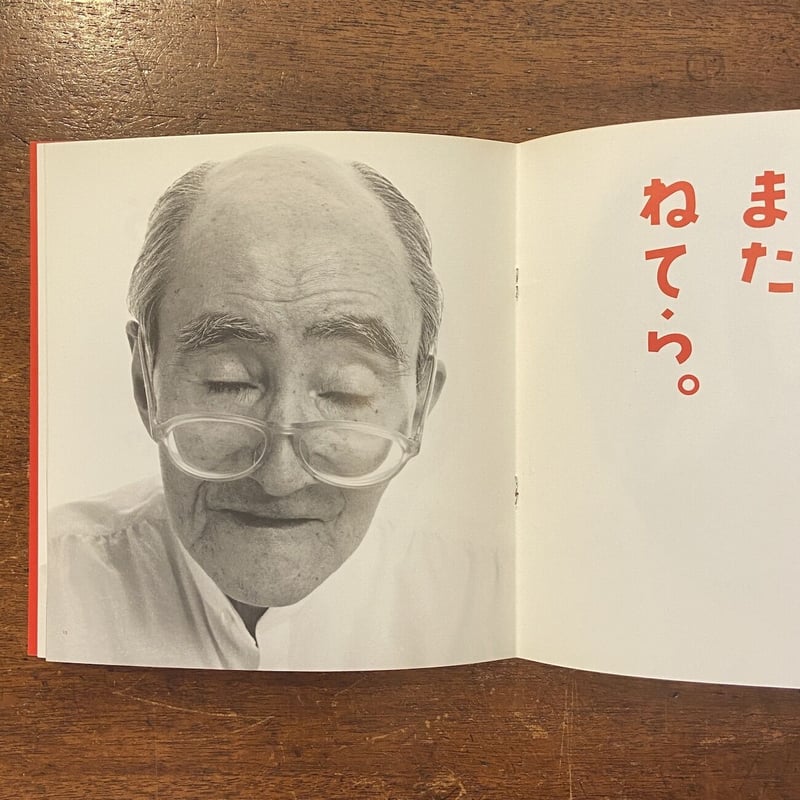 また
ねてら。